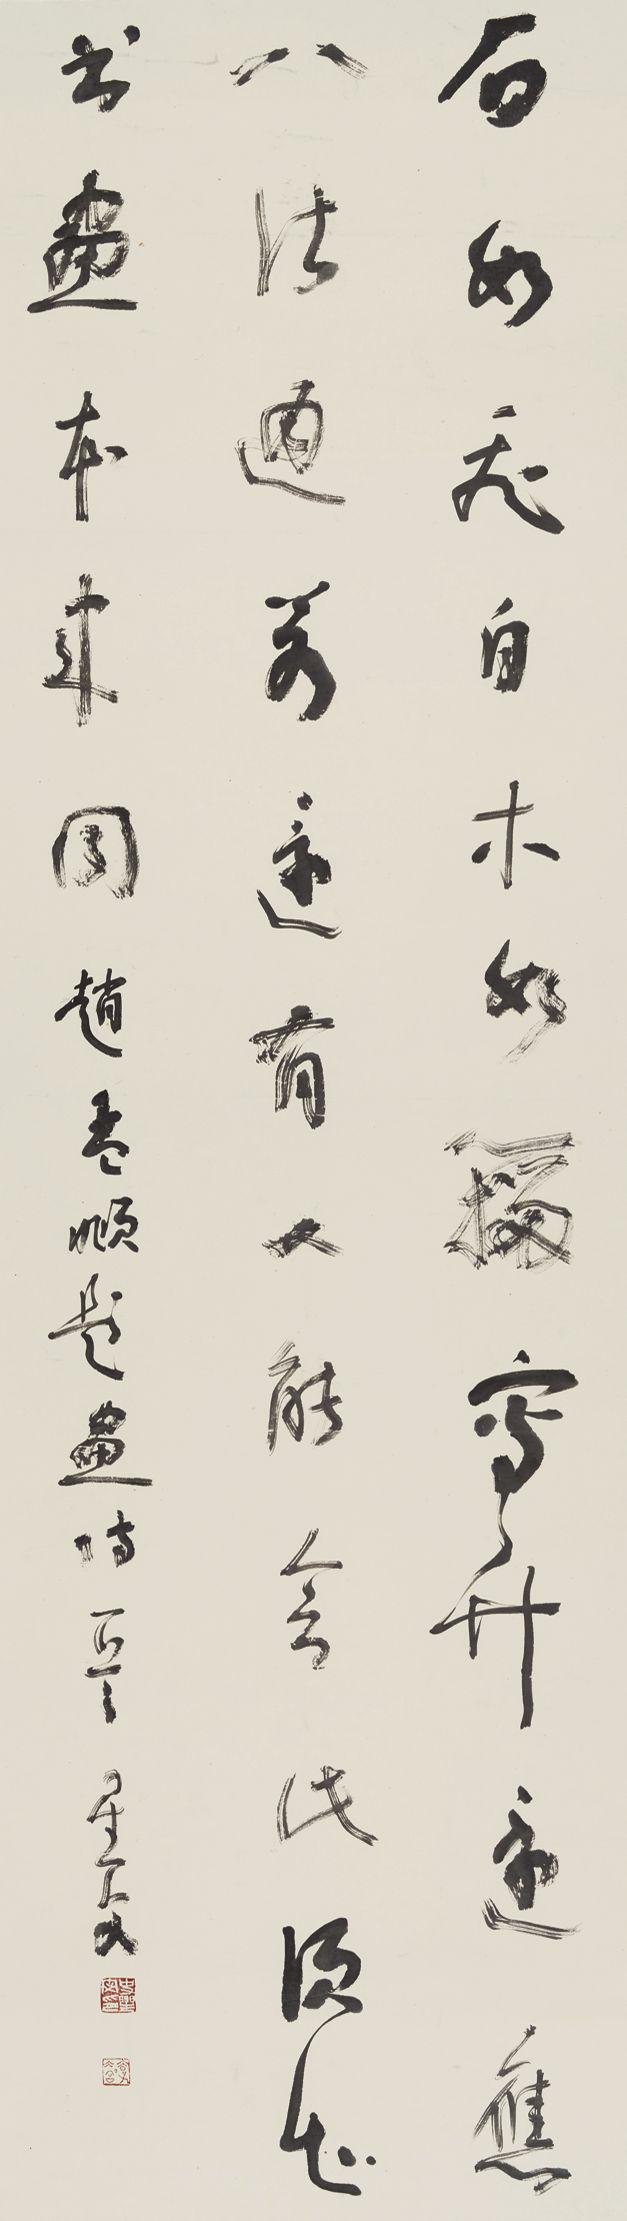 石如飛白木如籀寫竹還應
八法通若還有人能會此須知
書畫本來同趙孟頫題畫詩